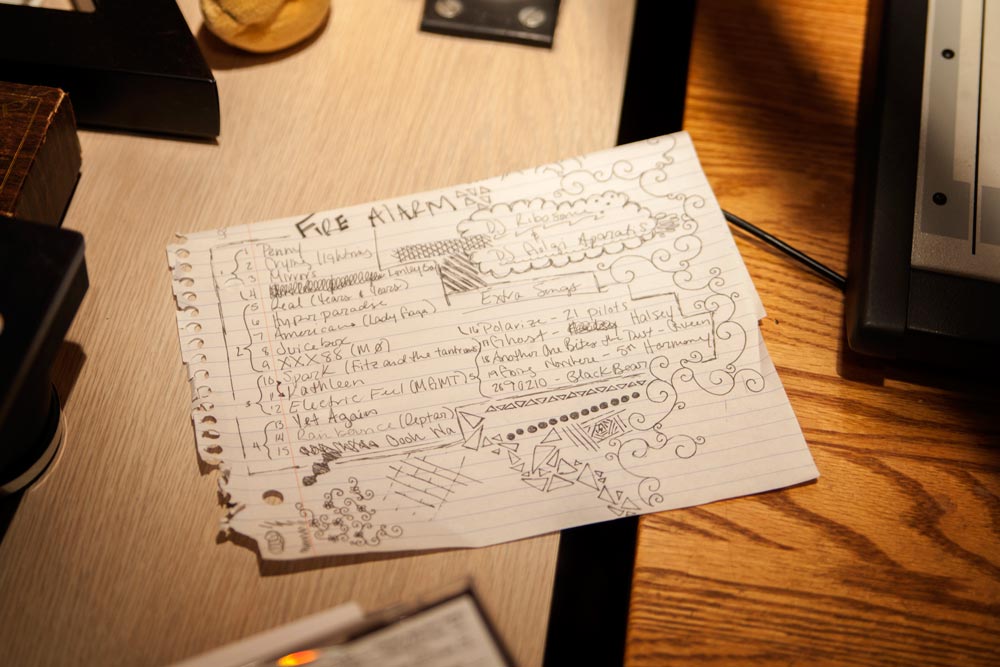 FIRE ALARM
DJ Ribosome
&
DJ Golgi Apparatis
1 Penny
2 Frying lightning
3 Mirrors
4 Lonely Boy
5 Real (Years & Years)
6 Hyperparadise
7 Americano (Lady Gaga)
8 Juicebox
9 XXX88 (MØ)
10 Spark (Fitz and the tantrums)
11 Kathleen
12 Electric Feel (MGMT)
13 Yet Again
14 Ran Bounce (Reptar)
15 Oooh Wa
1
2
3
4
5
Extra Songs
16 Polarize - 21 pilots
17 Ghost - Halsey
18 Another One Bites the Dust - Queen
19 Going Nowhere - 5th Harmony
20 90210 - BlackBear